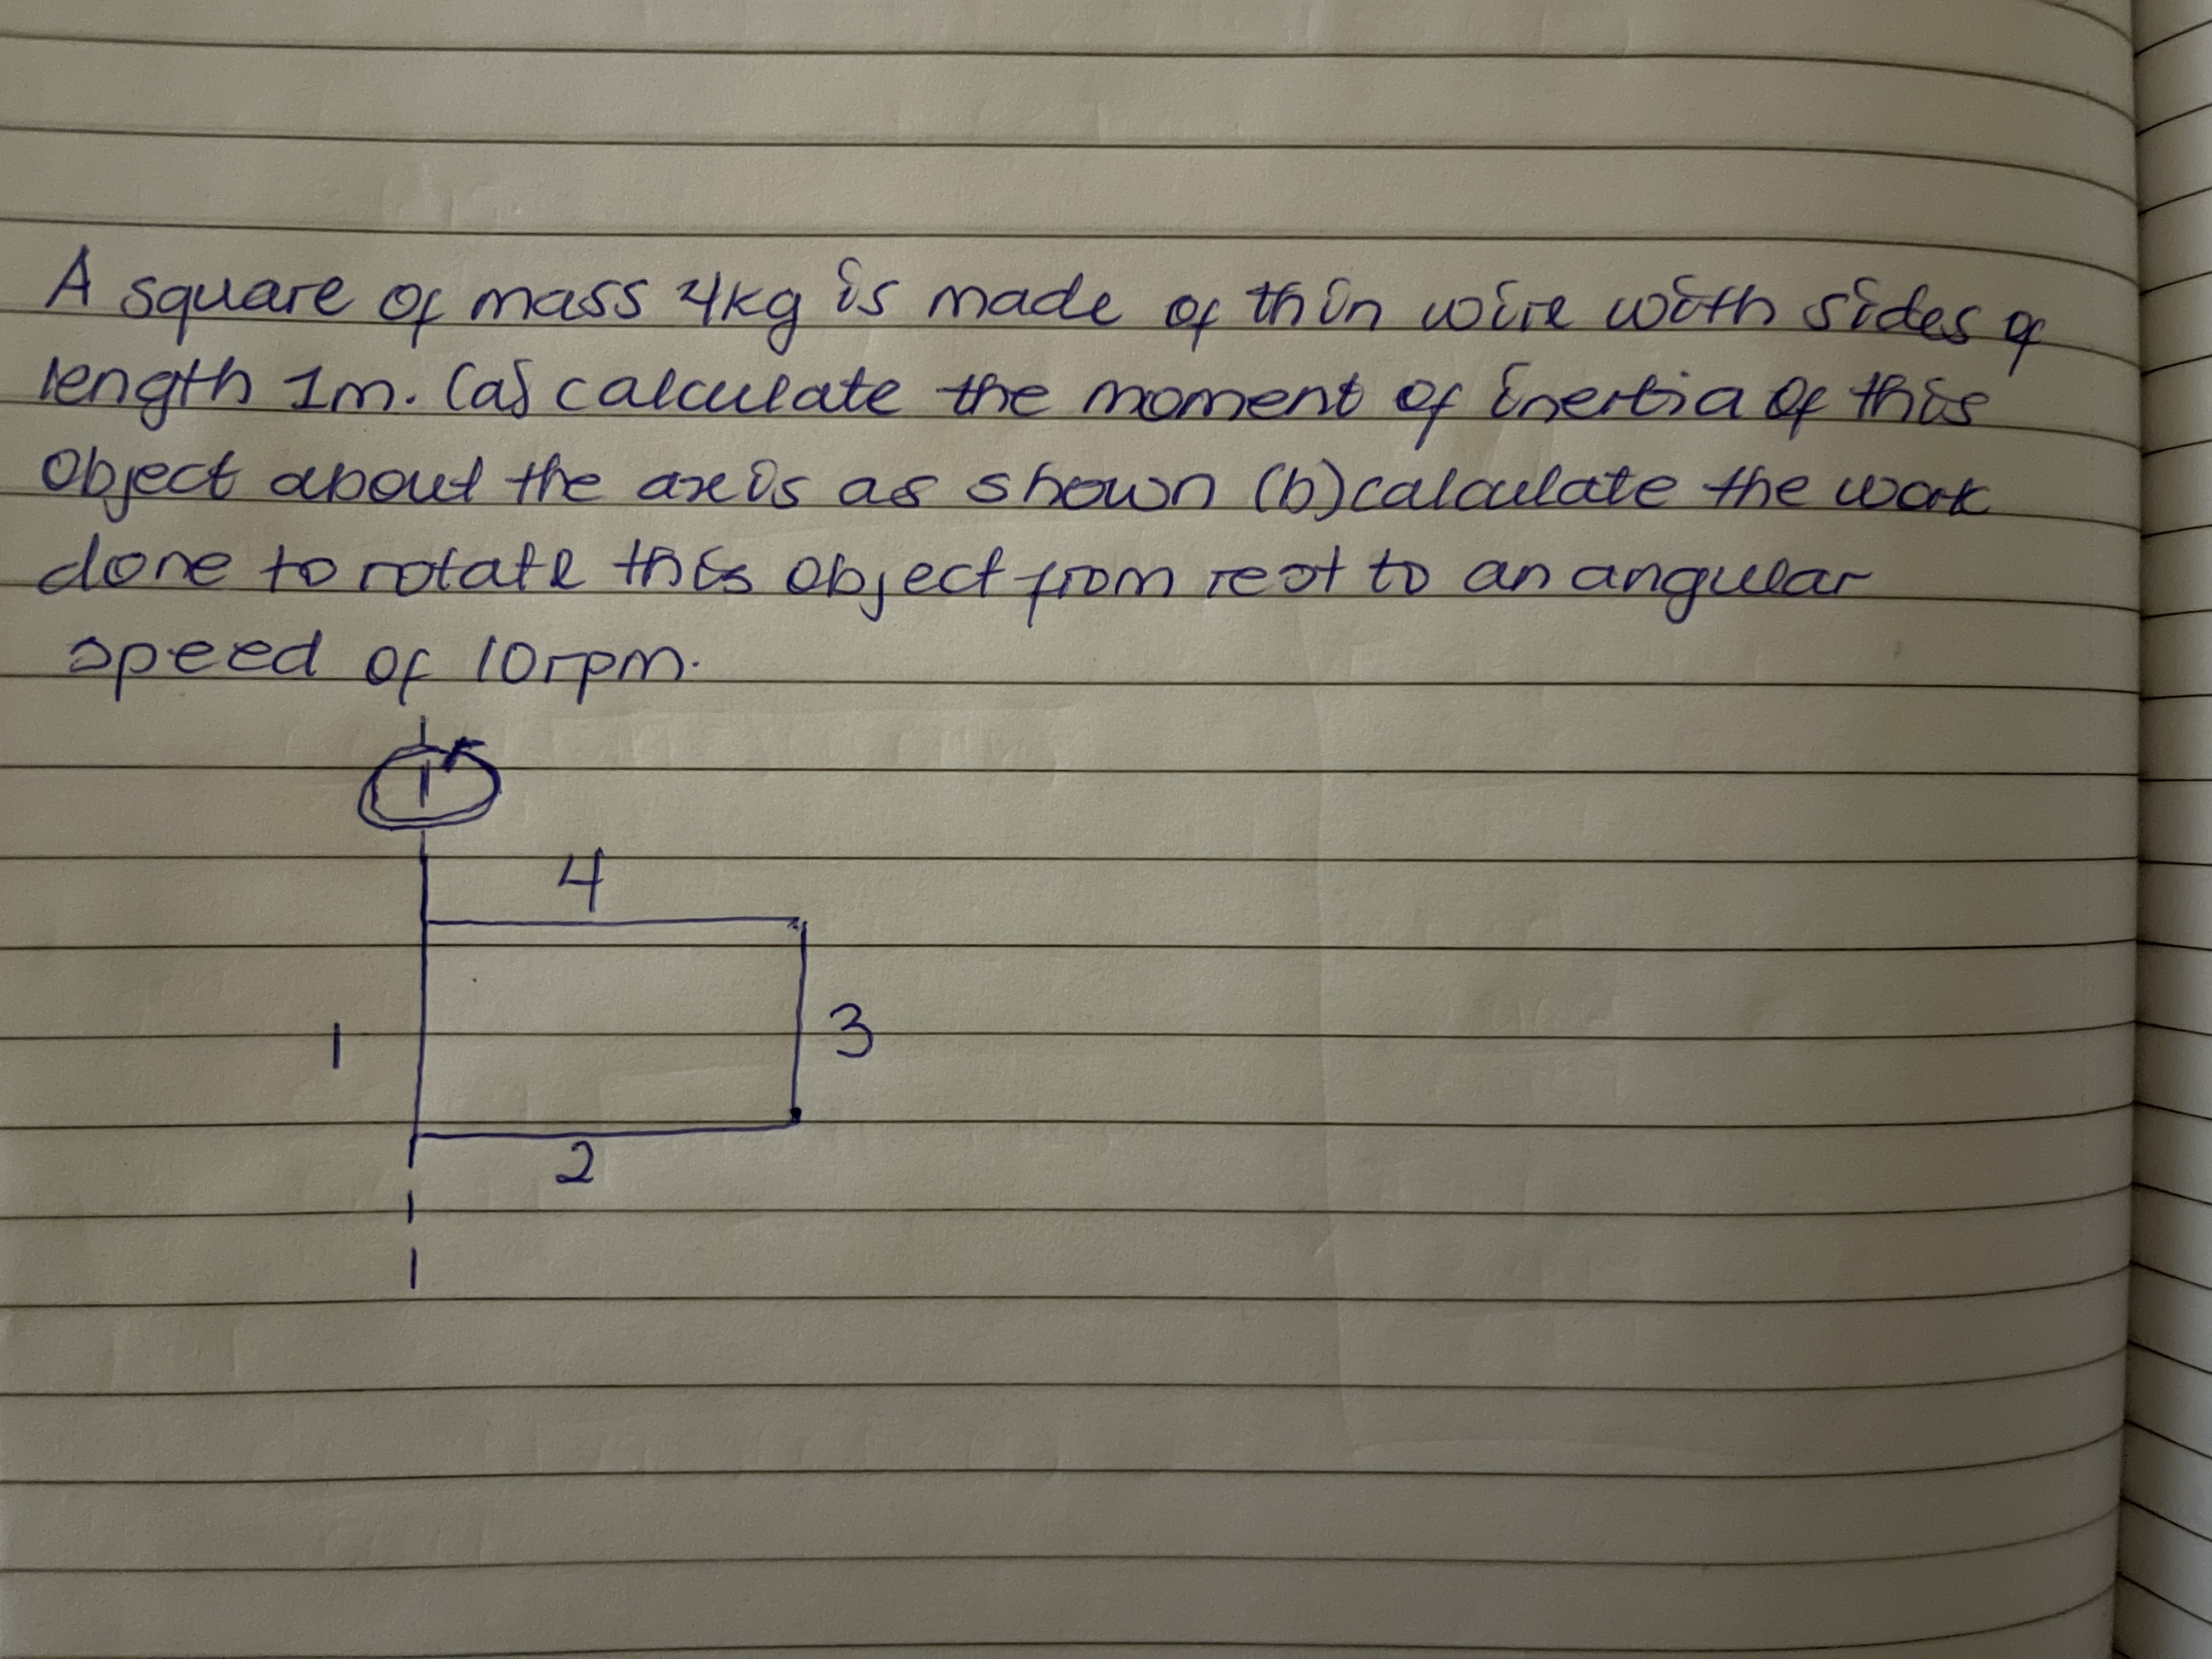 A square of mass 4kg is made of thin wire with sides of
length 1m. (a) calculate the moment of inertia of this
object about the axis as shown (b) calculate the work
done to rotate this object from rest to an angular
speed of 10rpm.
4
1
3
2